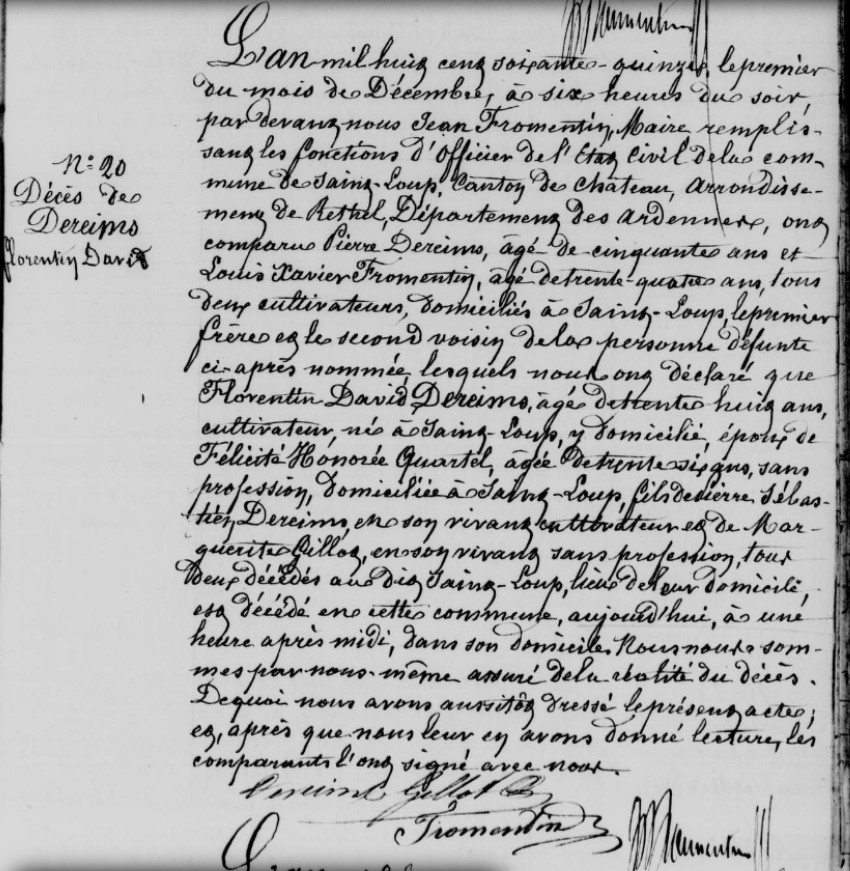 L'an mil huit cent soixante-quinze, le premier
du mois de Décembre, à six heures du soir,
par devant nous Jean Fromentin, Maire remplis-
sant les fonctions d'Officier de l'Etat Civil de la com-
mune de Saint-Loup, Canton de Chateau, Arrondisse-
ment de Rethel, Département des Ardennes, ont
comparu Pierre Dereims, âgé de cinquante ans et
Louis Xavier Fromentin, âgé de trente-quatre ans, tous
deux cultivateurs, domiciliés à Saint-Loup, le premier
frère et le second voisin de la personne défunte
ci-après nommée, lesquels nous ont déclaré que
Florentin David Dereims, âgé de trente huit ans,
cultivateur, né à Saint-Loup, y domicilié, époux de
Félicité Honorée Quartel, âgée de trente six ans, sans
profession, domiciliée à Saint-Loup, fils de Pierre Sébas-
tien Dereims, en son vivant cultivateur et de Mar-
guerite Gillot, en son vivant sans profession, tous
deux décédés au dit Saint-Loup, lieu de leur domicile,
est décédé en cette commune, aujourd'hui, à une
heure après midi, dans son domicile. Nous nous som-
mes par nous-même assuré de la réalité du décès.
De quoi nous avons aussitôt dressé le présent acte;
et, après que nous leur en avons donné lecture, les
comparants l'ont signé avec nous.
N° 20
Décès de
Dereims
Florentin David
Dereims Gillot
Fromentin
Fromentin
L'an